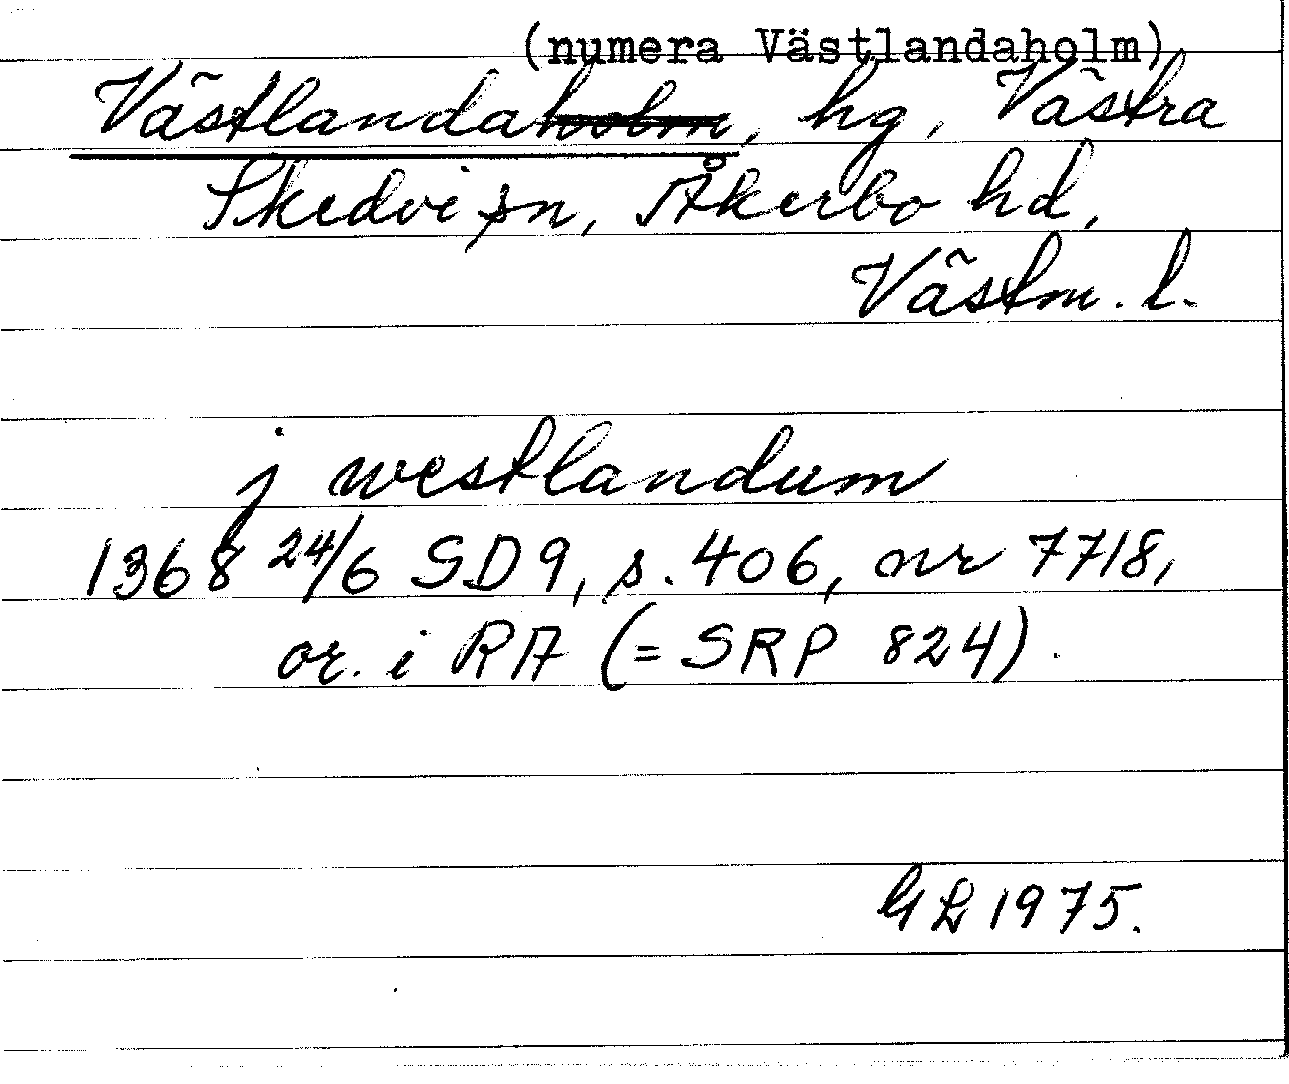 (numera Västlandaholm)
Västlandaholm, hg, Västra
Skedvi sn, Åkerbo hd,
Västm. l.
j westlandum
1368 24/6 SD 9, s. 406, nr 7718,
or. i RA (= SRP 824).
GL 1975.